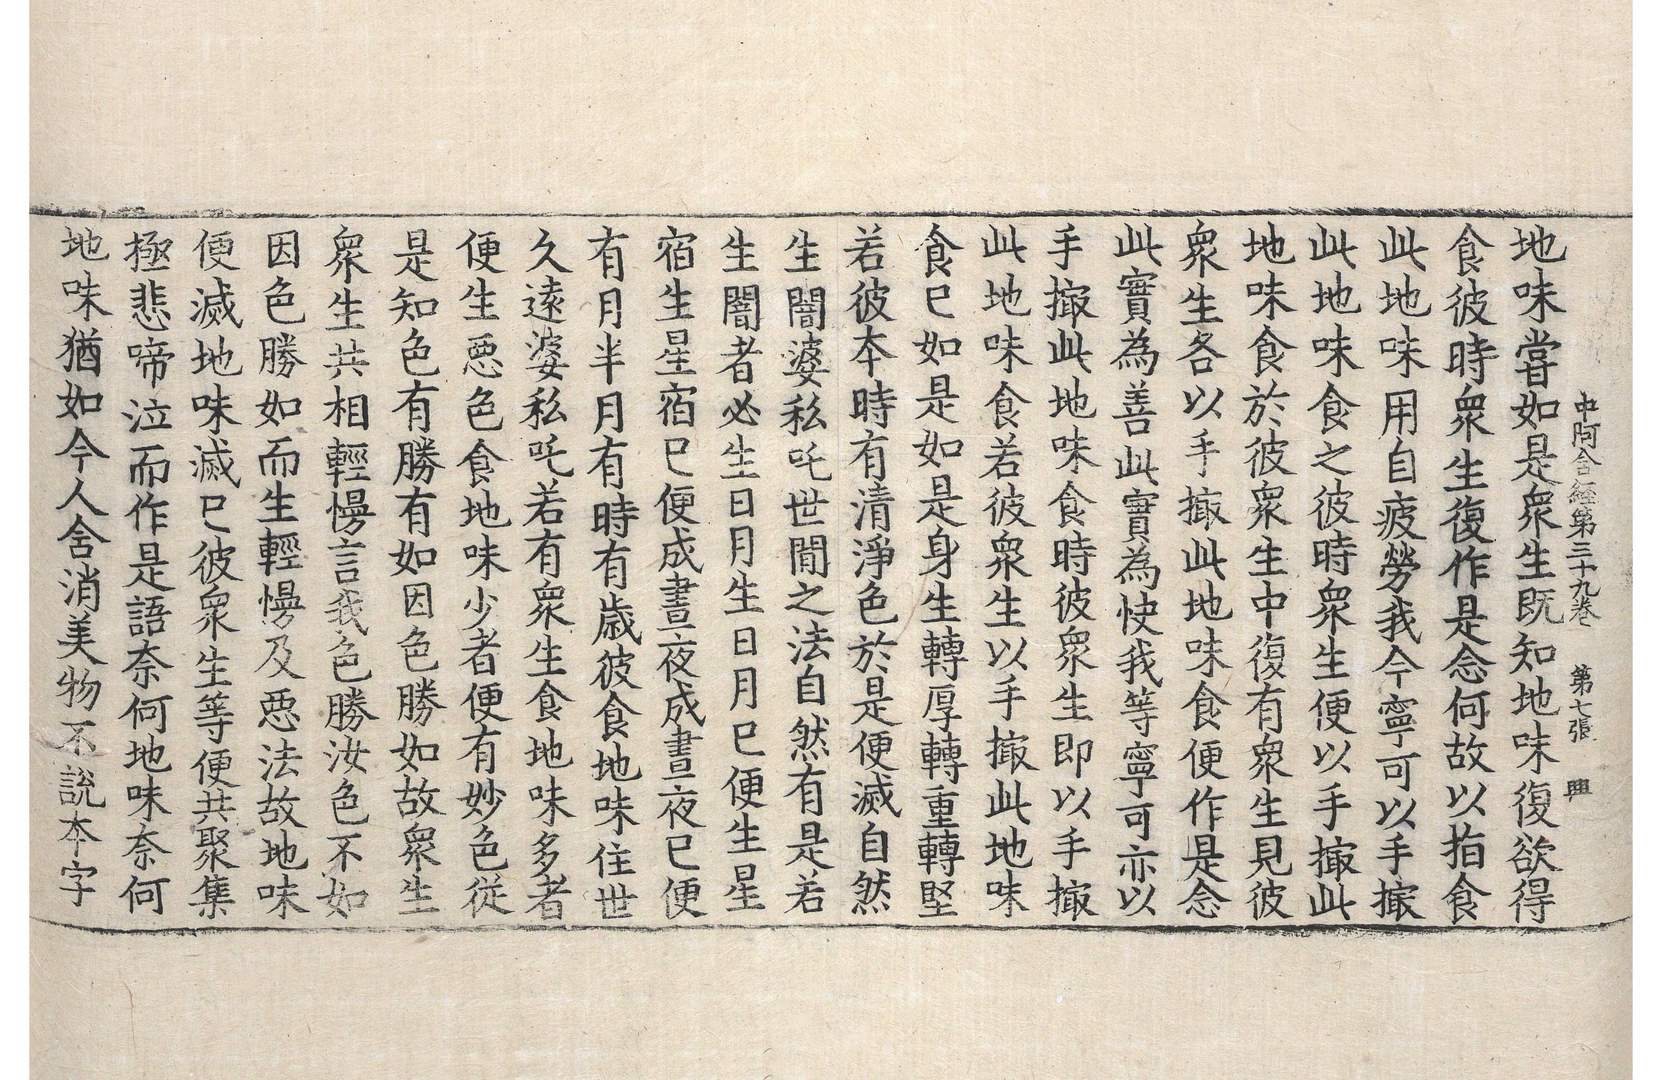 中阿含經第三十九卷 第七張 興
地味嘗如是衆生旣知地味復欲得
食彼時衆生復作是念何故以指食
此地味用自疲勞我今寧可以手撮
此地味食之彼時衆生便以手撮此
地味食於彼衆生中復有衆生見彼
衆生各以手撮此地味食便作是念
此實爲善此實爲快我等寧可亦以
手撮此地味食時彼衆生即以手撮
此地味食若彼衆生以手撮此地味
食已如是如是身生轉厚轉重轉堅
若彼本時有清淨色於是便滅自然
生闇婆私吒世間之法自然有是若
生闇者必生日月生日月已便生星
宿生星宿已便成晝夜成晝夜已便
有月半月有時有歲彼食地味住世
久遠婆私吒若有衆生食地味多者
便生惡色食地味少者便有妙色從
是知色有勝有如因色勝如故衆生
衆生共相輕慢言我色勝汝色不如
因色勝如而生輕慢及惡法故地味
便滅地味滅已彼衆生等便共聚集
極悲啼泣而作是語奈何地味奈何
地味猶如今人舍消美物不說本字